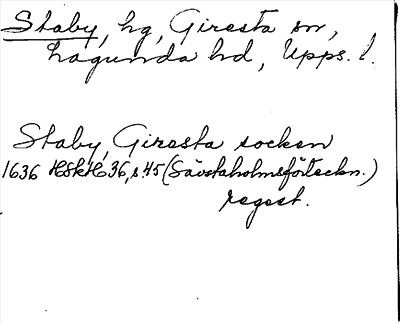 Staby, hg, Giresta sn,
Lagunda hd, Upps. l.
Staby, Giresta socken
1636 HSkH 36, s. 45 (Sävstaholmsförteckn.)
regest.